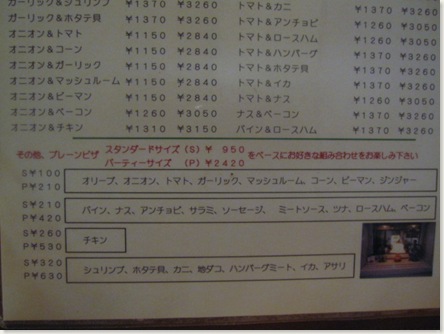 ガーリック&シュリンプ ¥1370 ¥3260
ガーリック&ホタテ貝 ¥1370 ¥3260
オニオン&トマト ¥1150 ¥2840
オニオン&コーン ¥1150 ¥2840
オニオン&ガーリック ¥1150 ¥2840
オニオン&マッシュルーム ¥1150 ¥2840
オニオン&ピーマン ¥1150 ¥2840
オニオン&ベーコン ¥1260 ¥3050
オニオン&チキン ¥1310 ¥3150
トマト&カニ ¥1370 ¥3260
トマト&アンチョビ ¥1260 ¥3050
トマト&ロースハム ¥1260 ¥3050
トマト&ハンバーグ ¥1370 ¥3260
トマト&ホタテ貝 ¥1370 ¥3260
トマト&イカ ¥1370 ¥3260
トマト&ナス ¥1260 ¥3050
ナス&ベーコン ¥1370 ¥3260
パイン&ロースハム ¥1370 ¥3260
その他、プレーンピザ スタンダードサイズ(S) ¥ 950
パーティーサイズ (P) ¥2420 をベースにお好きな組み合わせをお楽しみ下さい
S¥100
P¥210
オリーブ、オニオン、トマト、ガーリック、マッシュルーム、コーン、ピーマン、ジンジャー
S¥210
P¥420
パイン、ナス、アンチョビ、サラミ、ソーセージ、 ミートソース、ツナ、ロースハム、ベーコン
S¥260
P¥530
チキン
S¥320
P¥630
シュリンプ、ホタテ貝、カニ、地ダコ、ハンバーグミート、イカ、アサリ